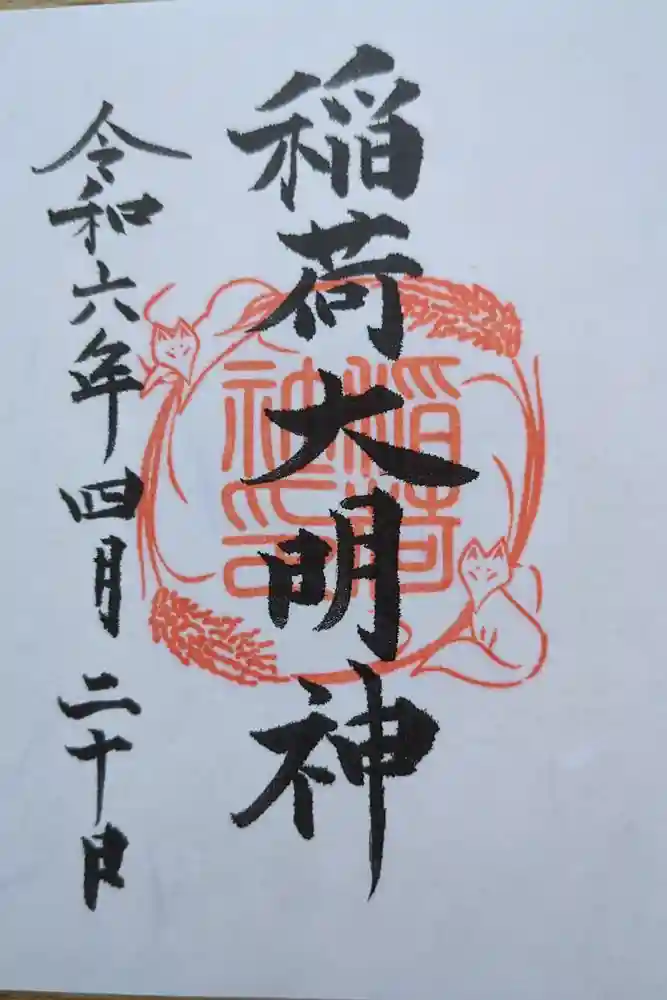 稲荷大明神
令和六年四月二十日
稲荷
神印